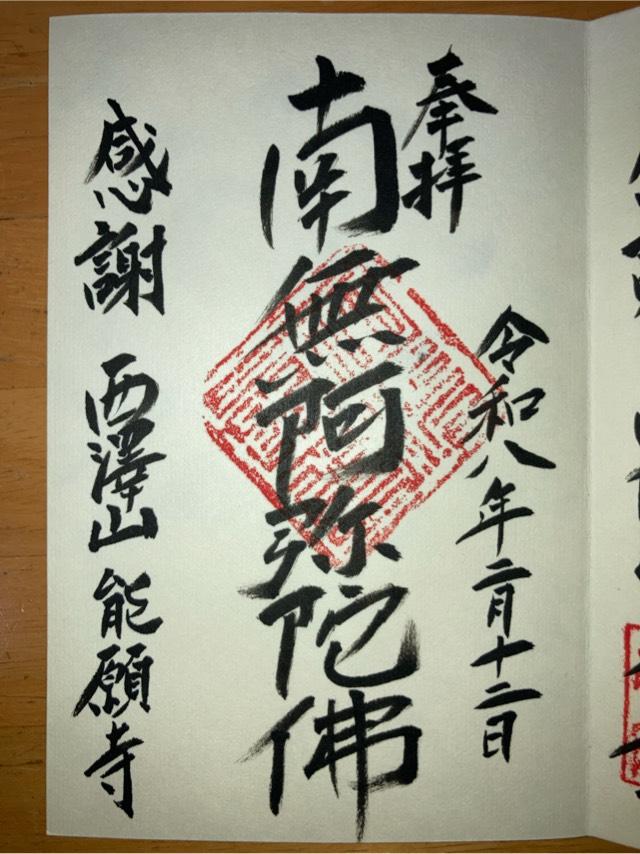 奉拝
令和八年二月十二日
南無阿弥陀佛
感謝 西澤山 能願寺